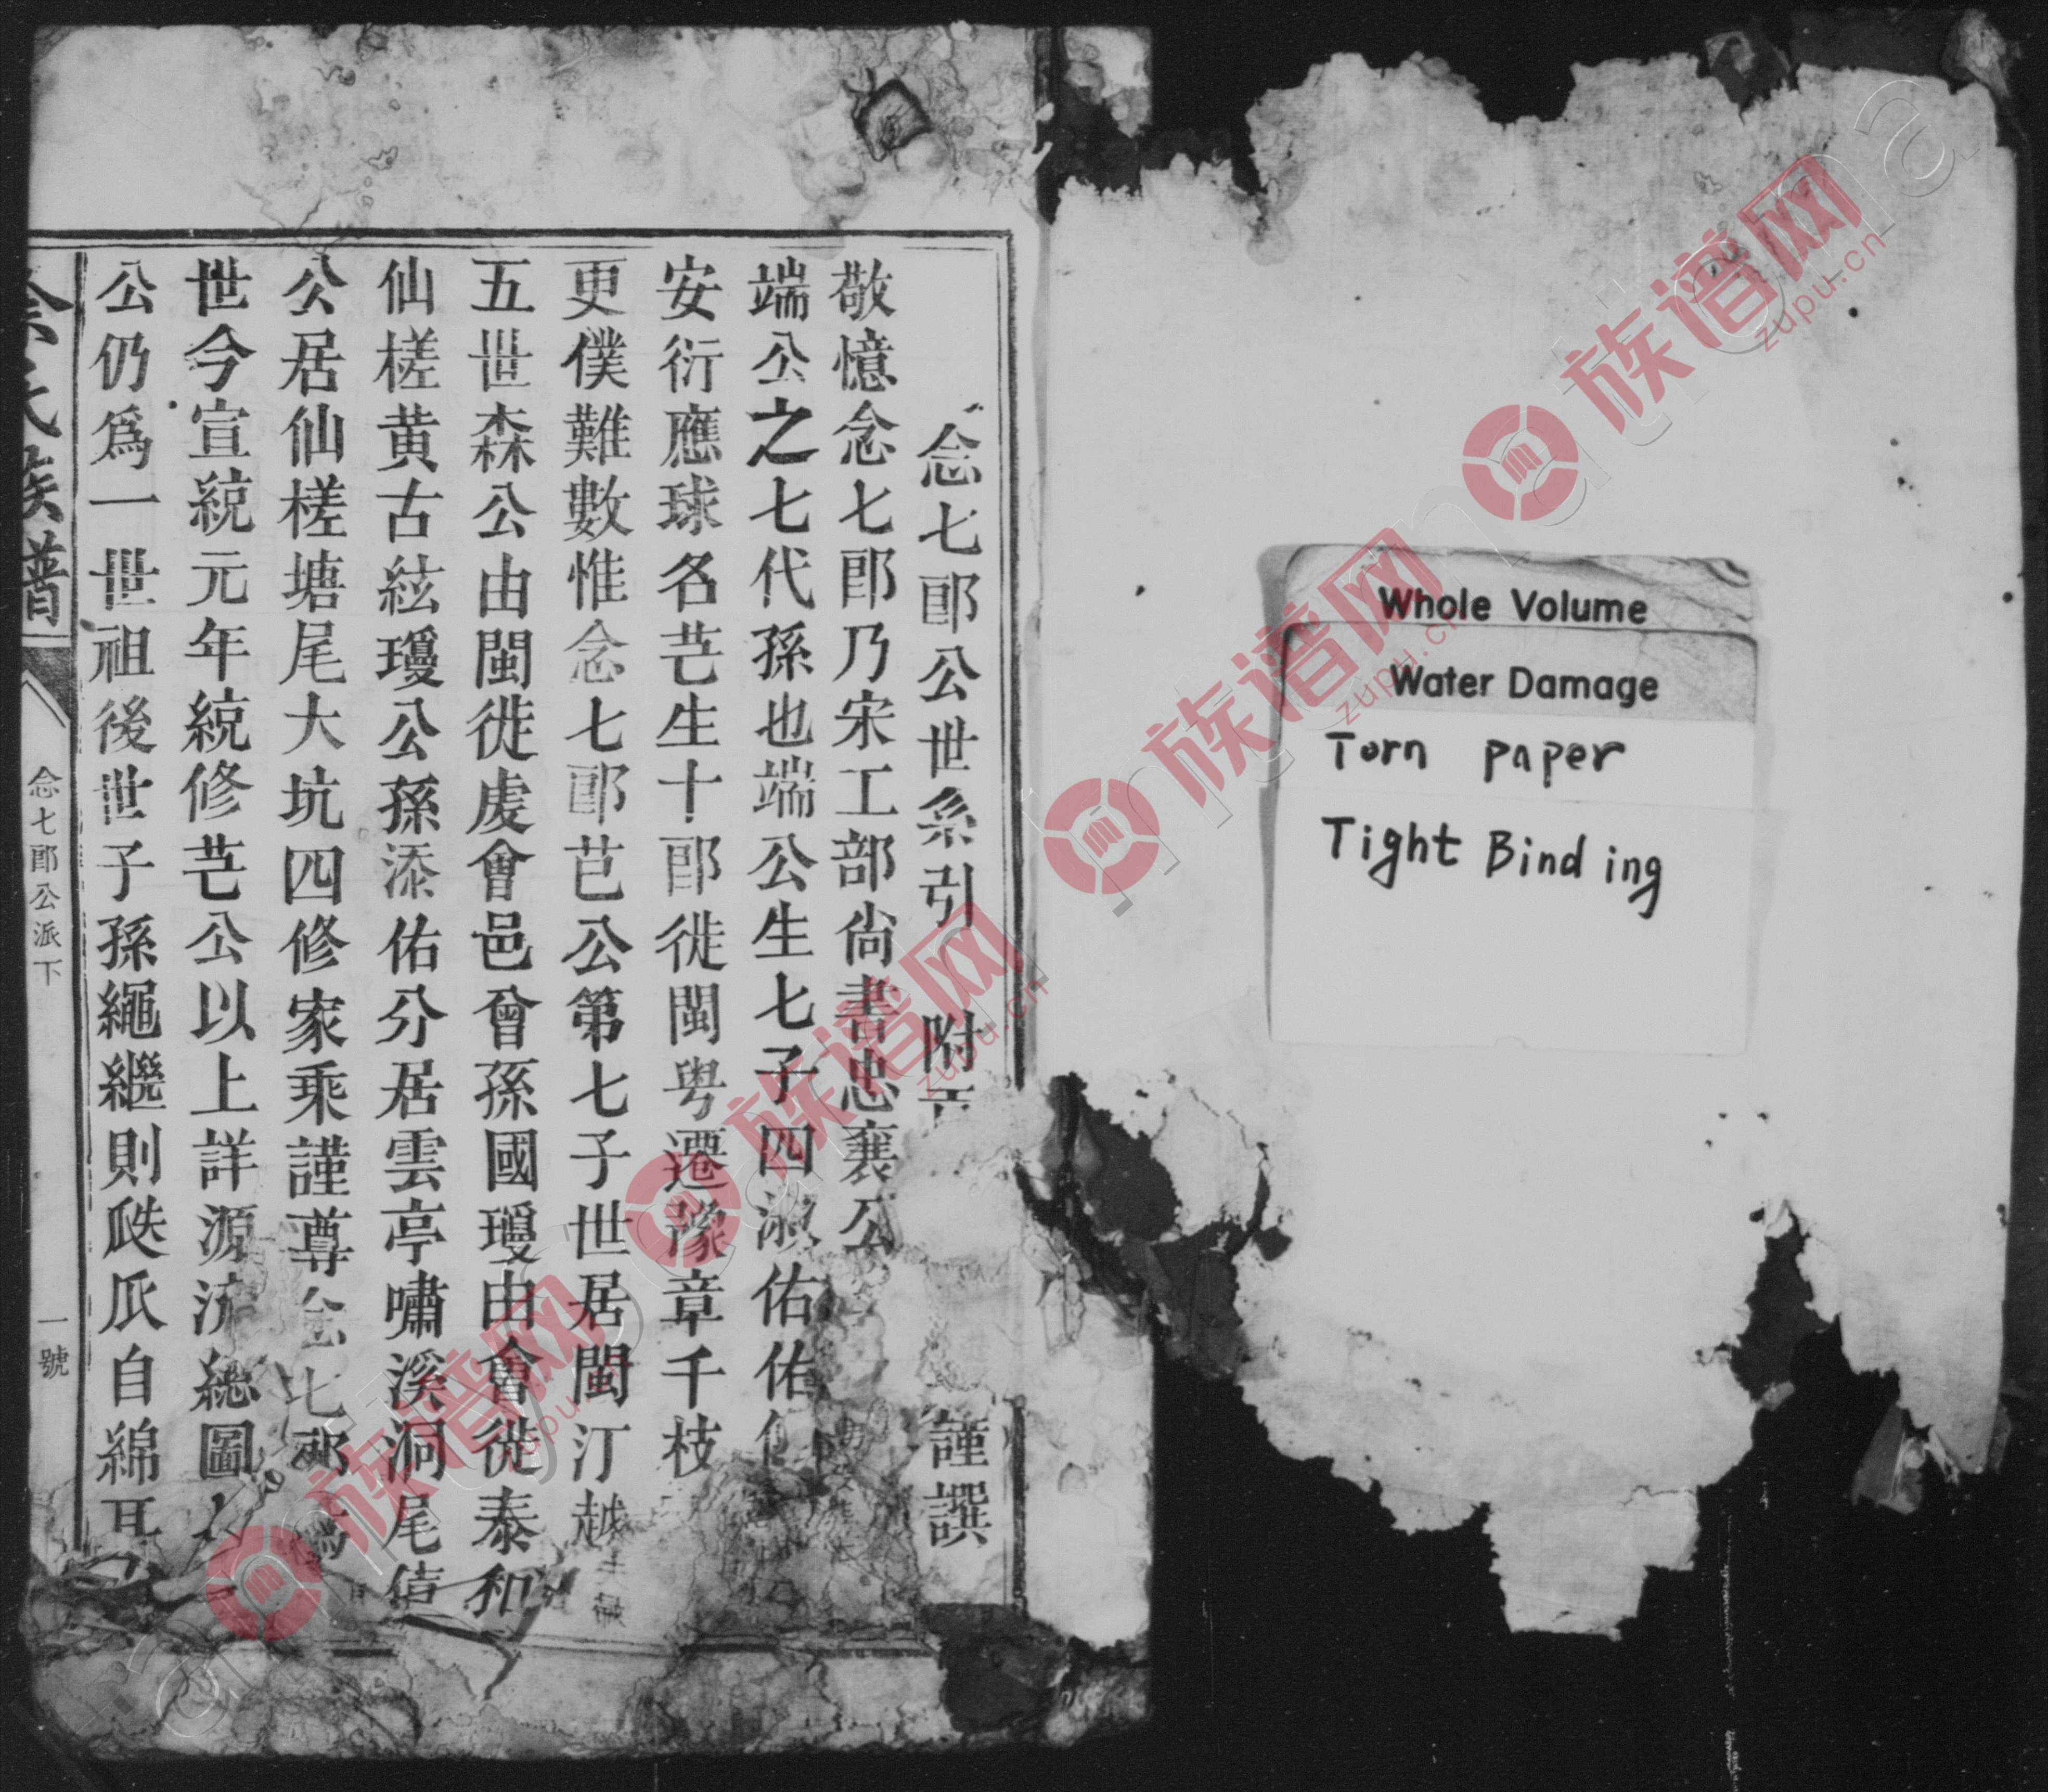 Whole Volume
Water Damage
Torn paper
Tight Binding
念七郎公世系引 附 謹譔
敬憶念七郎乃宋工部尚書忠襄公
端公之七代孫也端公生七子四淑佑佑
安衍應球名芑生十郎徙閩粤遷豫章千枝
更僕難數惟念七郎芭公第七子世居閩汀越
五世森公由閩徙虔會邑曾孫國瓊由會徙泰和
仙槎黄古絃瓊公孫添佑分居雲亭嘯溪洞尾
公居仙槎塘尾大坑四修家乘謹尊念七郎
世今宣統元年統修芑公以上詳源流總圖
公仍爲一世祖後世子孫繩繩繼則瓞瓜自綿
余氏族譜
念七郎公派下
一號
族谱网
zupu.cn
族谱网
zupu.cn
族谱网
zupu.cn
族谱网
zupu.cn